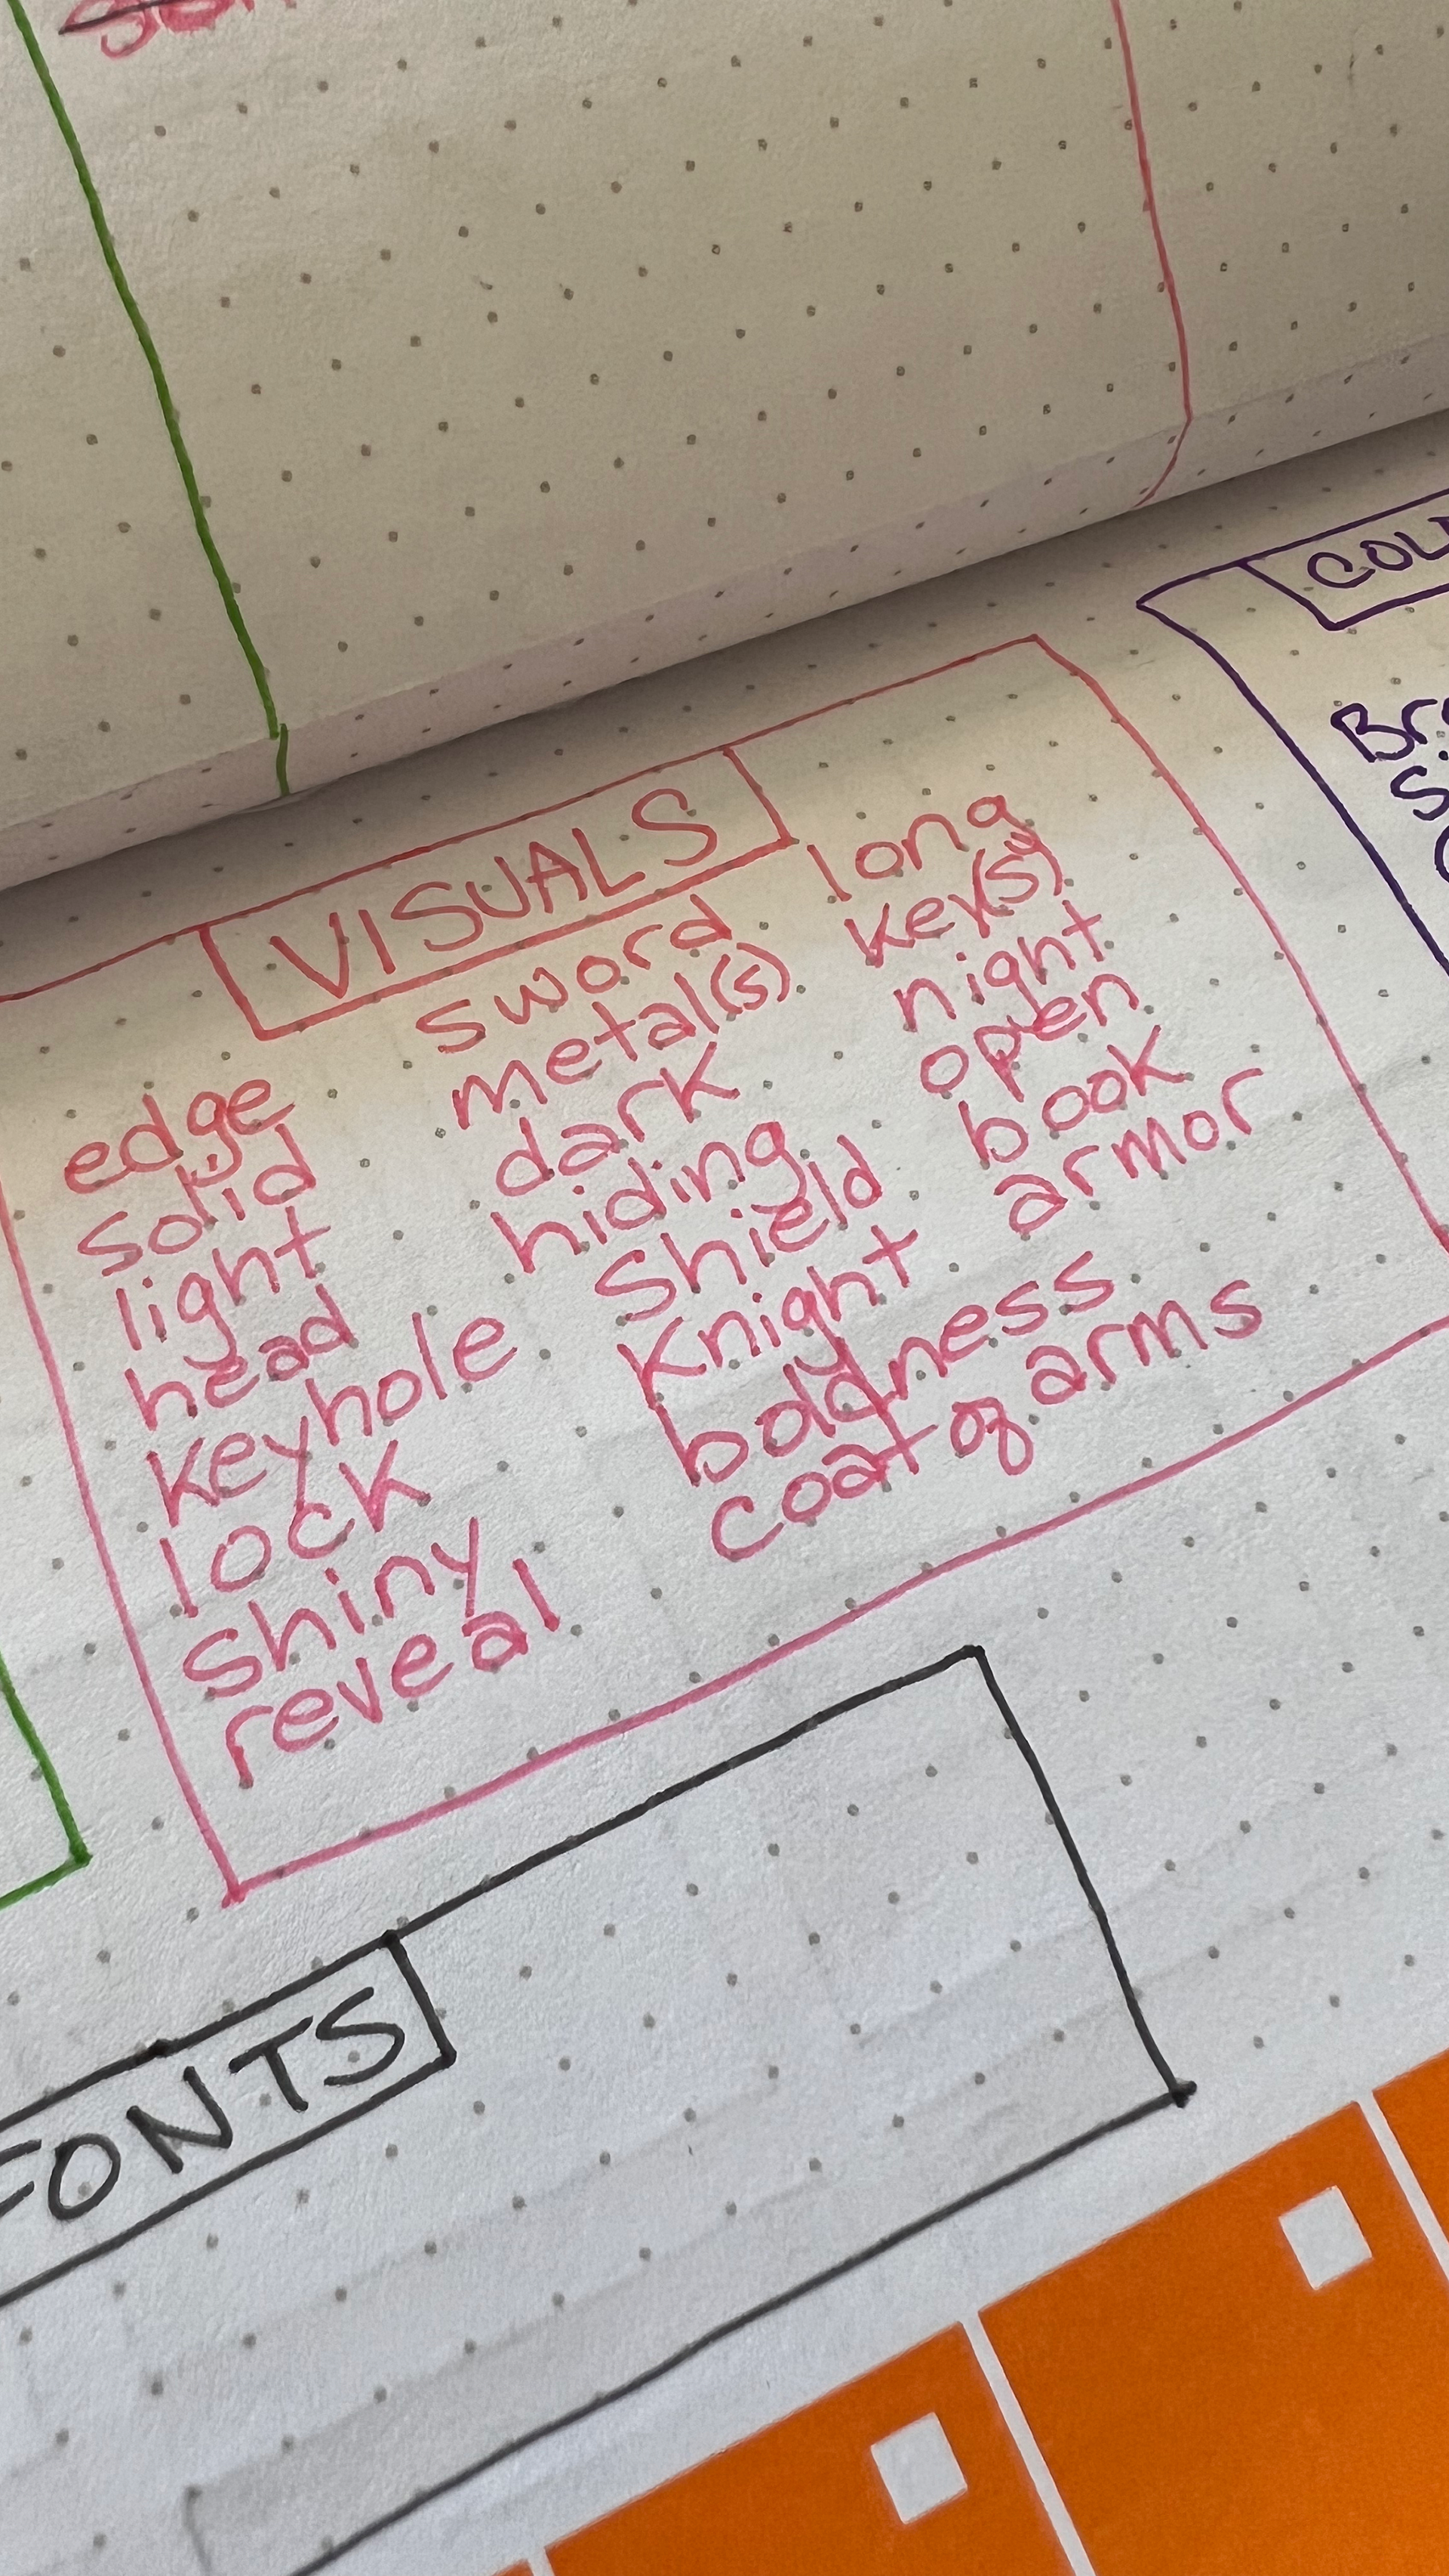 VISUALS
edge
solid
light
head
keyhole
lock
shiny
reveal
sword
metal(s)
dark
hiding
shield
knight
boldness
coat of arms
long
key(s)
night
open
book
armor
FONTS